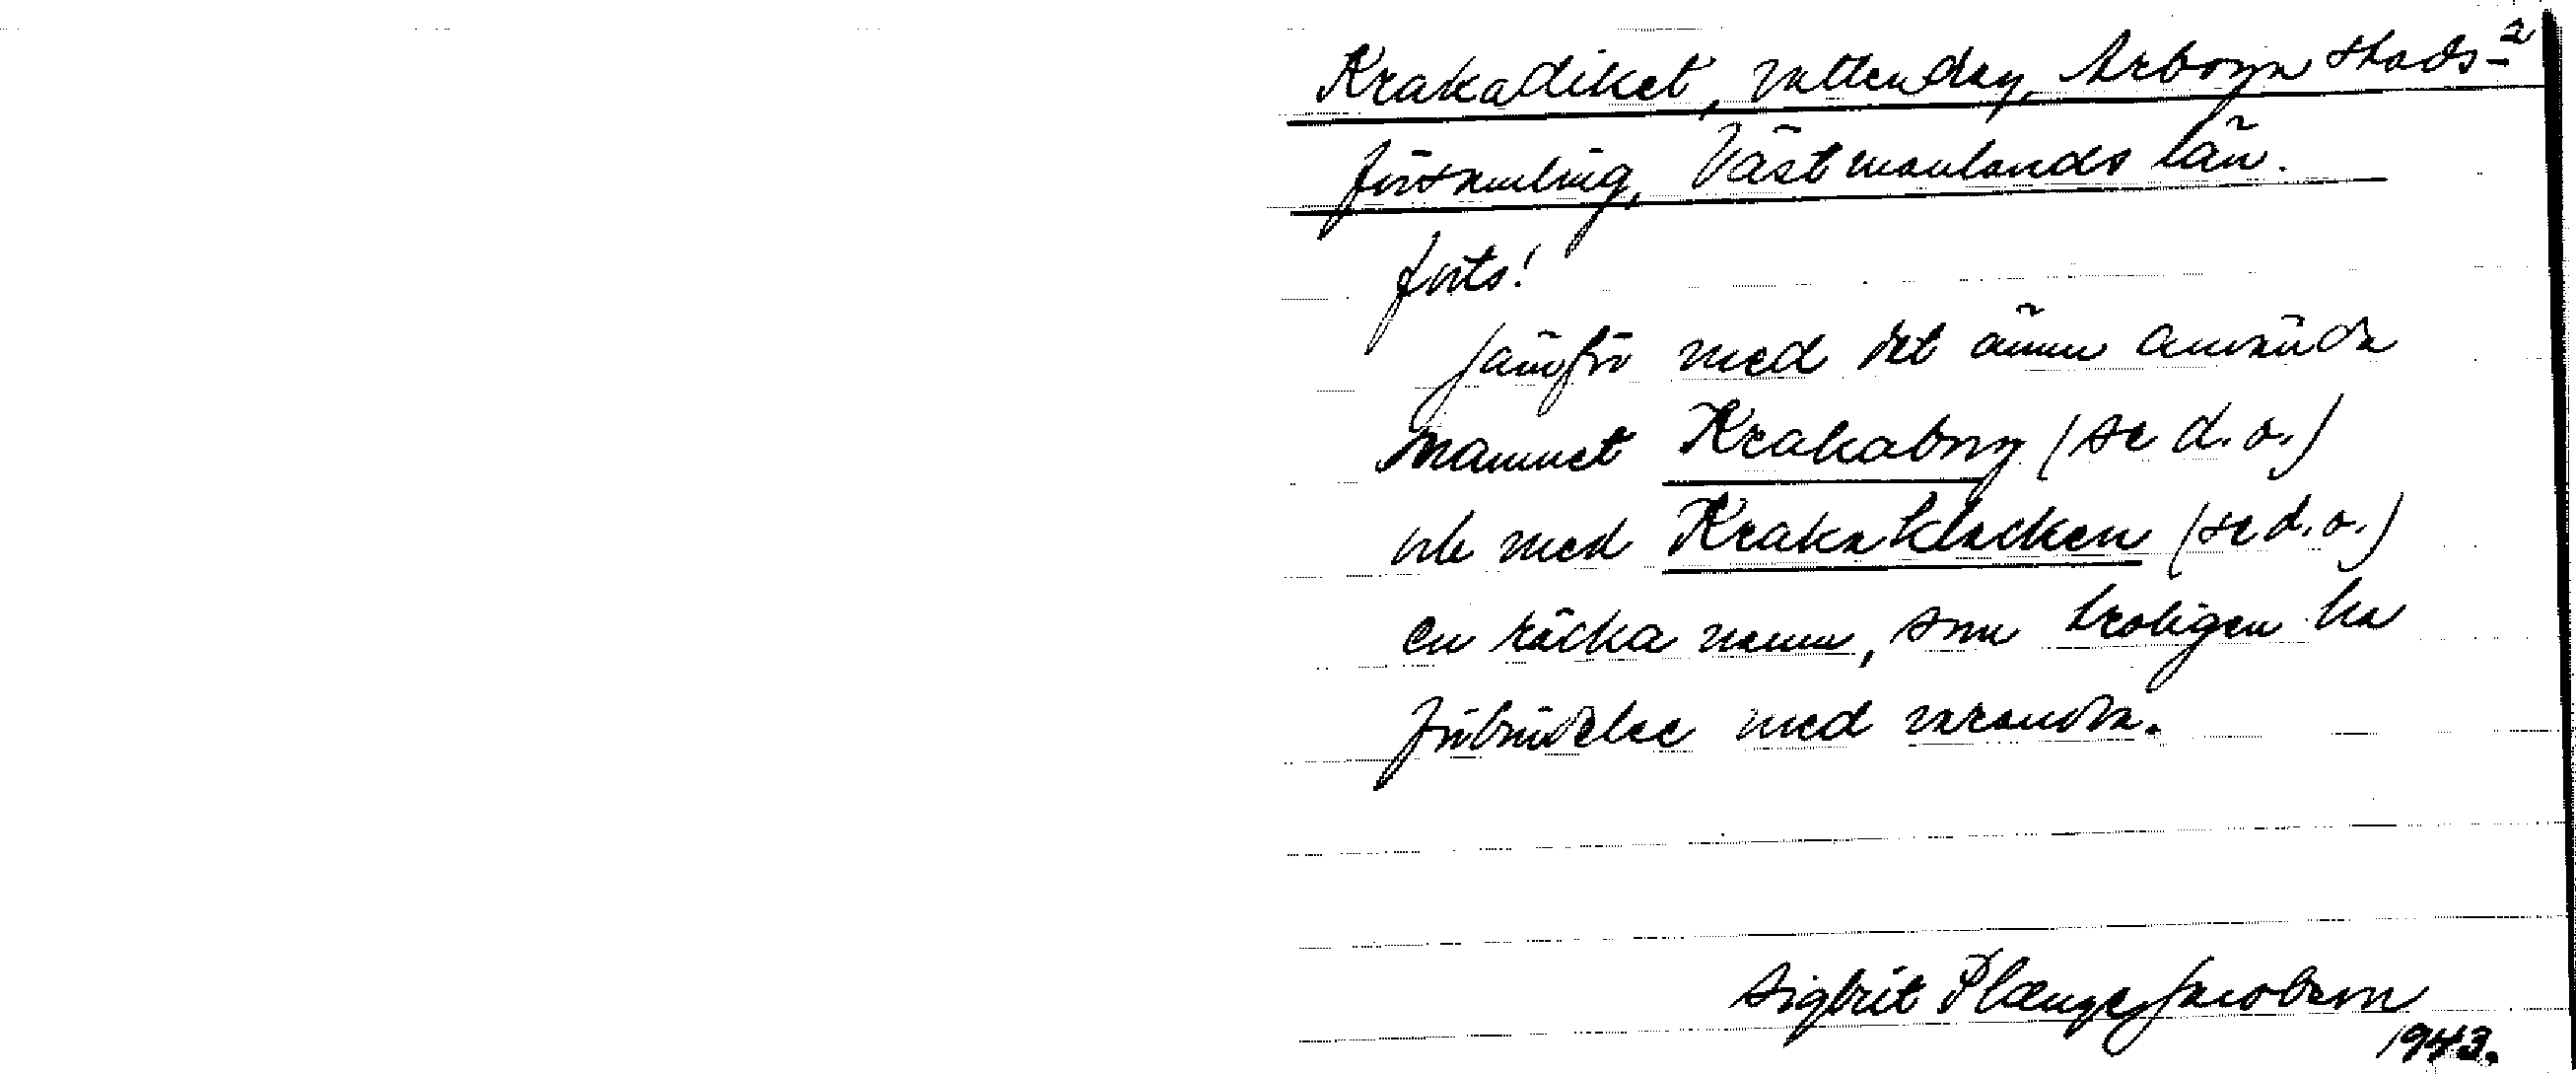 Krakadiket, vattendrag, Arboga stads-2
församling, Västmanlands län.
forts!
Jämför med det ännu använda
namnet Krakaborg (se d.o.)
och med Krakaklacken (se d.o.)
en räcka namn, som troligen ha
förbindelse med varandra.
Sigbrit Plænge Jacobson
1943.